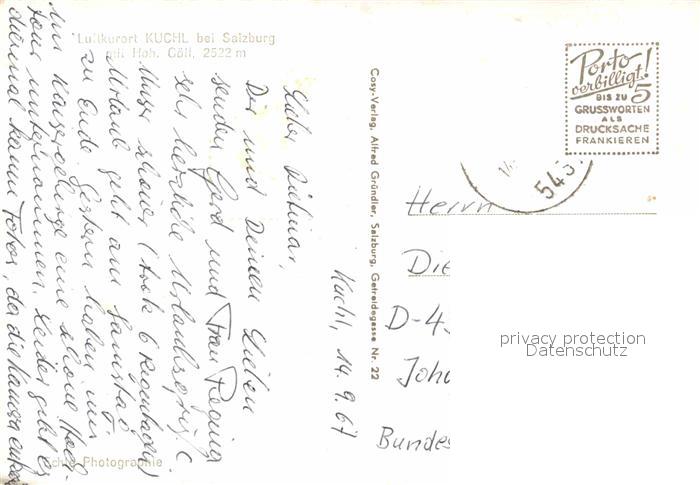 Luftkurort KUCHL bei Salzburg
mit Hoh. Göll, 2522 m
Kuchl, 14.9.67
Lieber Dietmar,
Dir und Deinen Lieben
senden Gerd und Frau Regina
sehr herzliche Urlaubsgrüße
Unser schöner (trotz 6 Regentagen)
Urlaub geht am Samstag
zu Ende. Gestern haben wir
im Kaisergebirge eine schöne
tour unternommen. Leider geht es
diesmal kaum Fotos, da die Kamera
Echte Photographie
Cosy-Verlag, Alfred Gründler, Salzburg, Getreidegasse Nr. 22
Porto
verbilligt!
BIS ZU 5
GRUSSWORTEN
ALS
DRUCKSACHE
FRANKIEREN
543
Herrn
Die
D-4
Joh
Bundes
privacy protection
Datenschutz